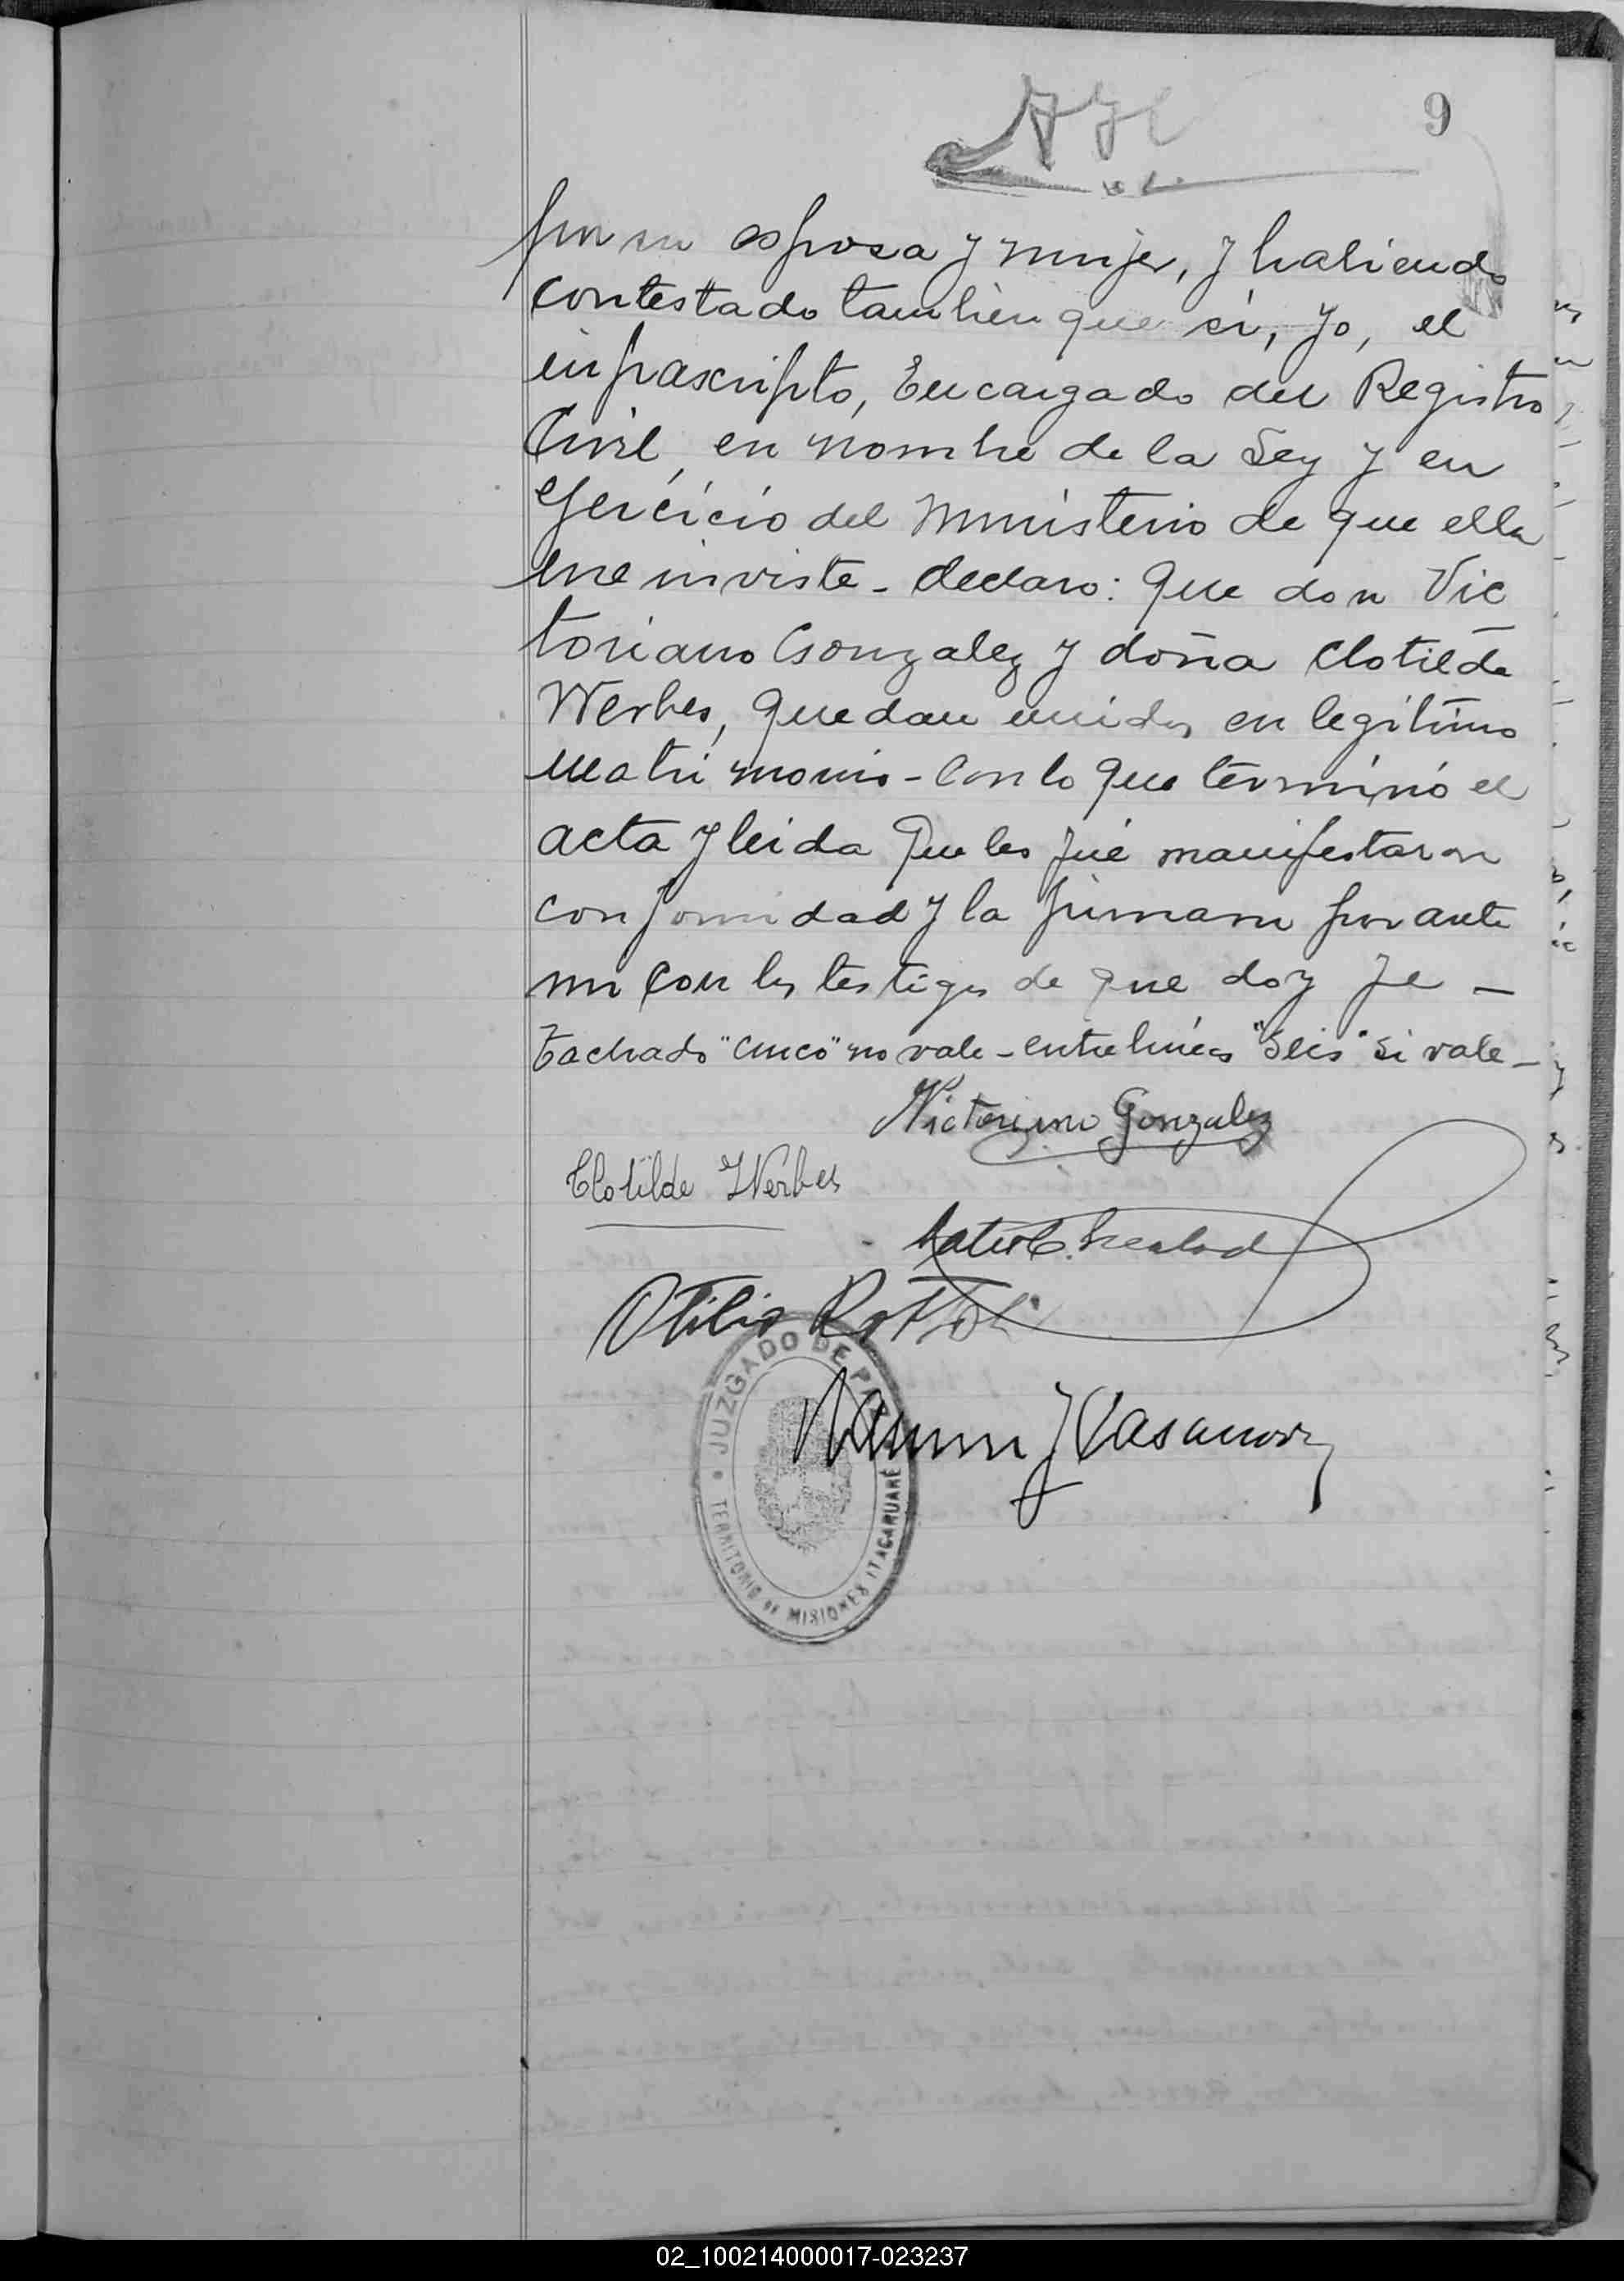 9
por su esposa y mujer, y habiendo
contestado tambien que si, yo, el
infrascripto, Encargado del Registro
Civil, en nombre de la Ley y en
ejercicio del Ministerio de que ella
me inviste - declaro: que don Vic
toriano Gonzalez y doña Clotilde
Werbes, quedan unidos en legitimo
matrimonio - Con lo que terminó el
acta y leida que les fué manifestaron
conformidad y la firman por ante
mi con los testigos de que doy fe -
Tachado "cinco" no vale - entre lineas "Seis" si vale -
Victoriano Gonzalez
Clotilde Werbes
Otilio
JUZGADO DE PAZ
TERRITORIO DE MISIONES ITACARUARÉ
Ramon J Casanova
02_100214000017-023237